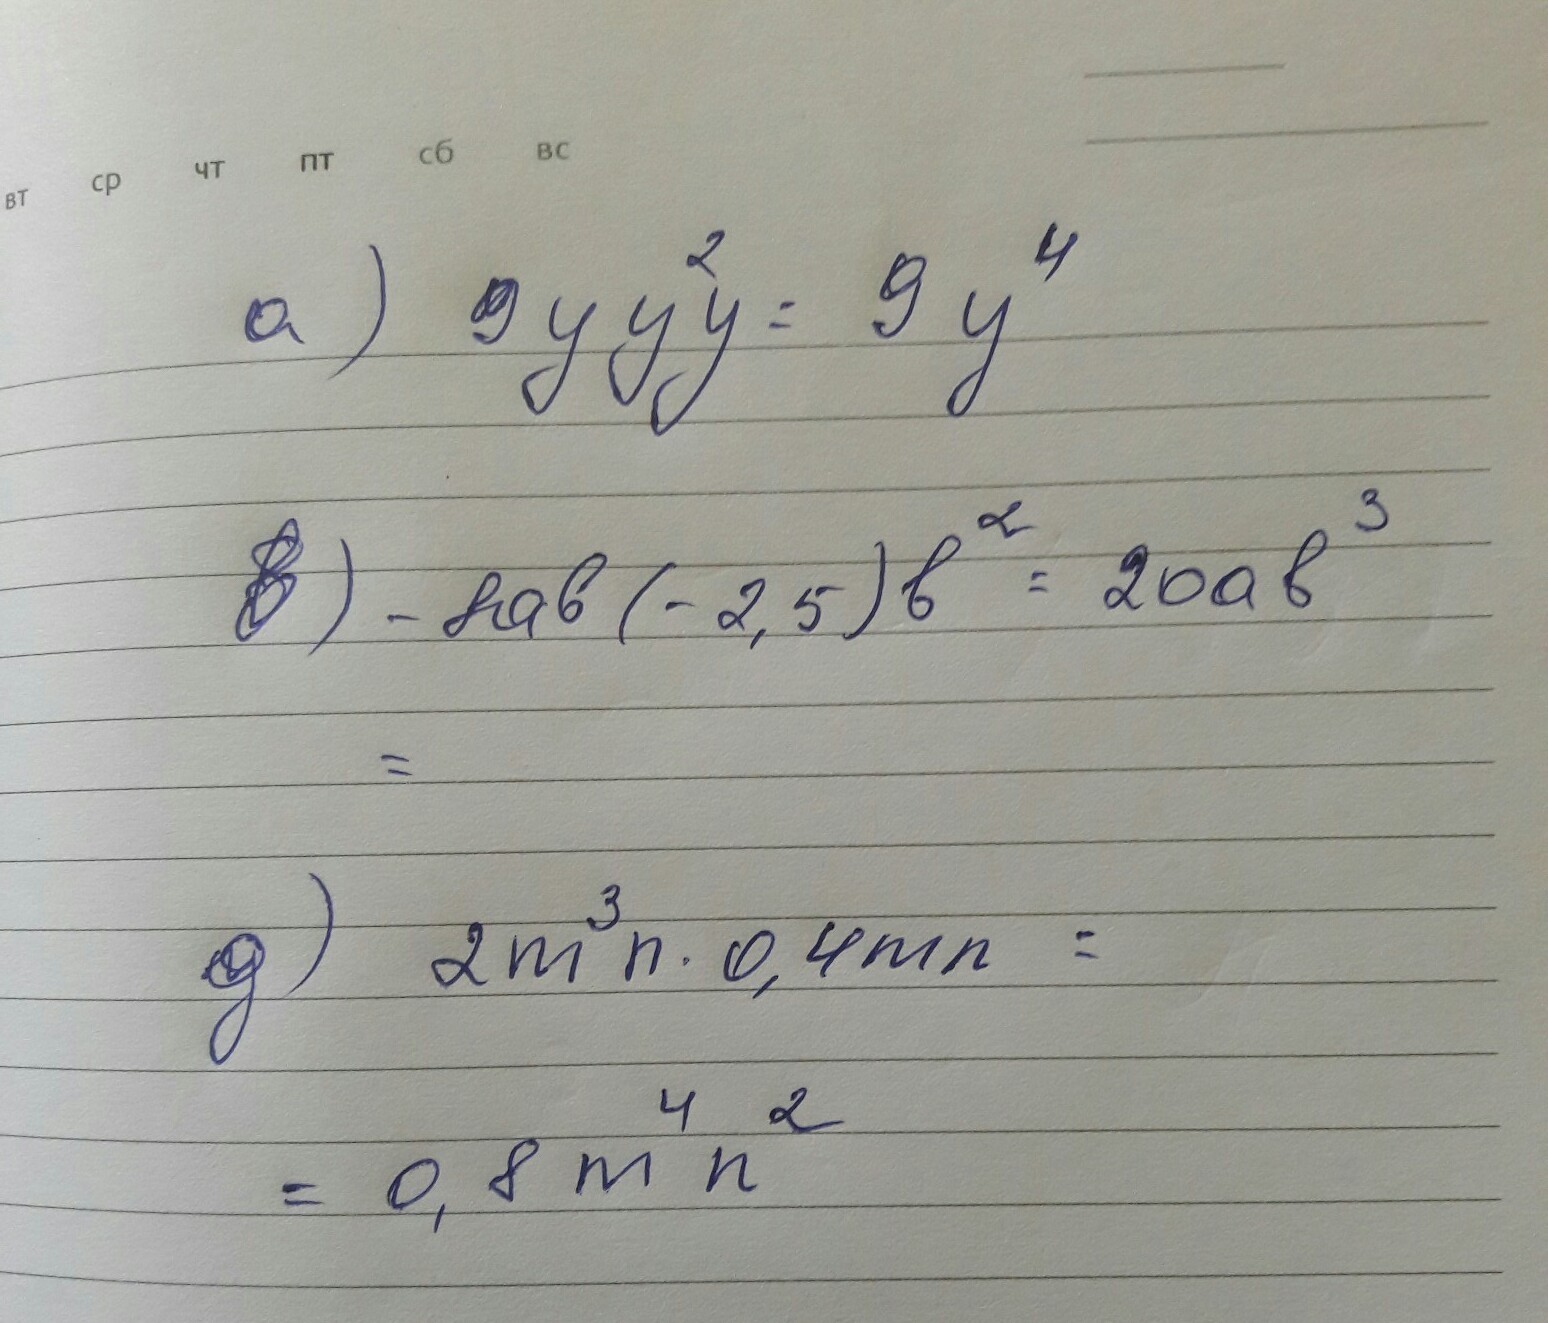 вт ср чт пт сб вс
а) 9yy²y = 9y⁴
в) -8ab(-2,5)b² = 20ab³
=
g) 2m³n · 0,4mn =
= 0,8m⁴n²